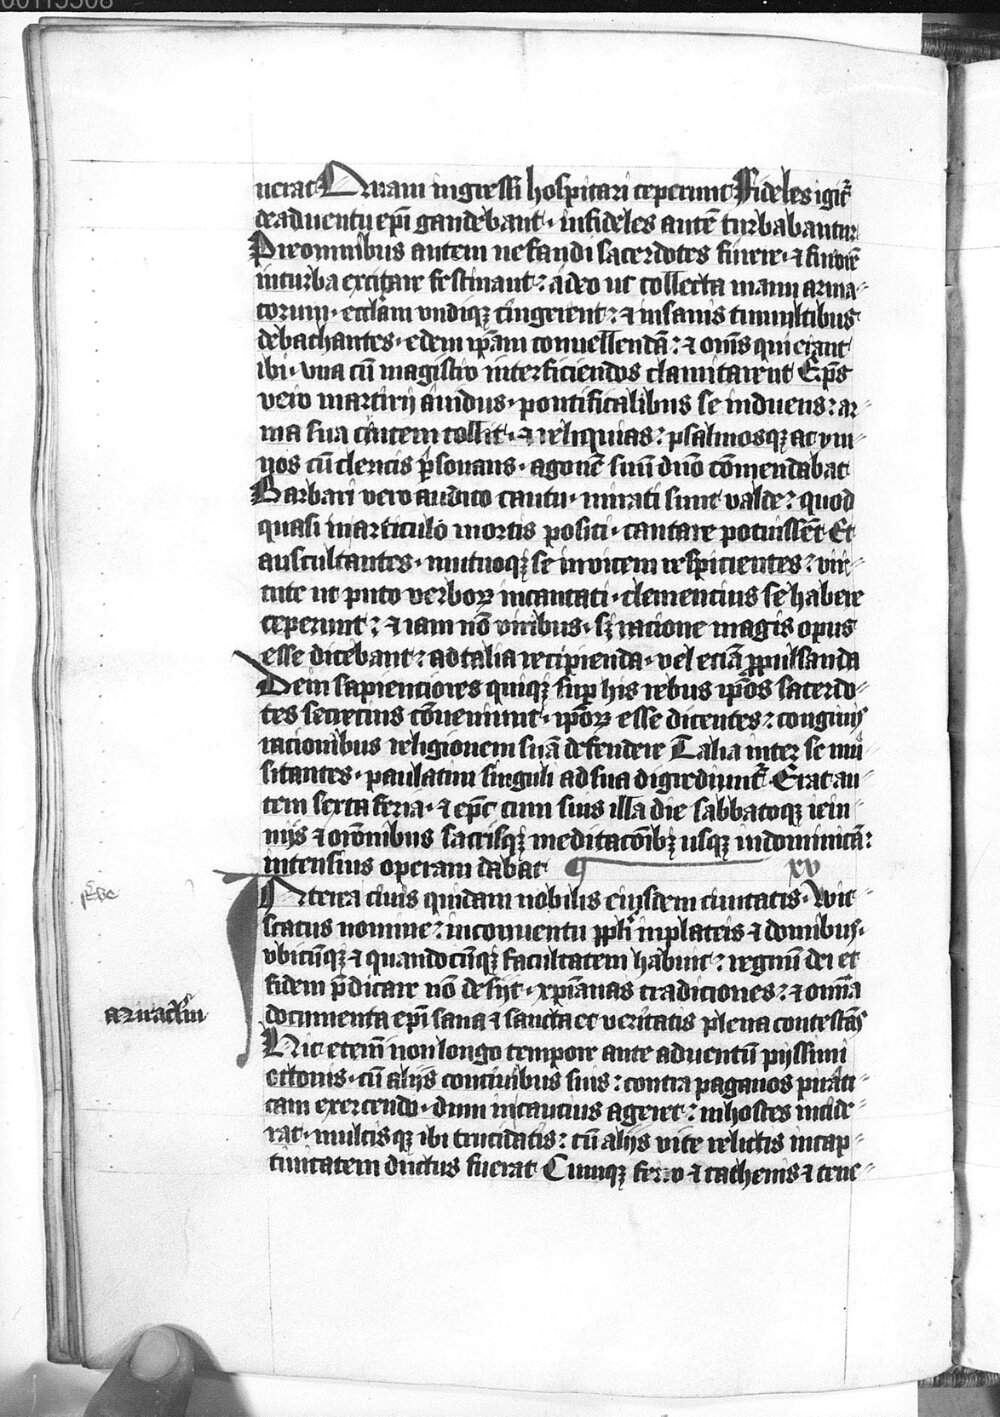 uerat Quam ingressi hospitari ceperunt Fideles igit᷑
de aduentu ep̄i gaudebant · infideles autē turbabantur
Pre omnibus autem nefandi sacerdotes furere · ⁊ furore
in turba excitare festinant : adeo ut collecta manu arma-
torum · ecclām undiqꝫ cingerent : ⁊ insanis tumultibus
debachantes · edem ip̄am conuellendā : ⁊ om̄s qui erant
ibi · vna cū magistro interficiendos clamitarent Ep̄s
vero martirij auidus · pontificalibus se induens : ar-
ma sua crucem tollit · ⁊ reliquias : psalmosqꝫ ac ym-
nos cū clericis ꝑsonans · agonē suū dn̄o cōmendabat
Barbari vero audito cantu · mirati sunt valde : quod
quasi in articulo mortis positi · cantare potuissēt Et
auscultantes · mutuoqꝫ se inuicem respicientes : vir-
tute ut puto verboꝝ incantati · clementius se habere
ceperunt : ⁊ iam nō viribus · sꝫ racione magis opus
esse dicebant : ad talia recipienda · vel eciā ꝓpulsanda
Dein sapienciores quiqꝫ suꝑ his rebus ip̄os sacerdo-
tes secretius cōueniunt · ip̄oꝝ esse dicentes : congruis
racionibus religionem suā defendere Talia inter se mu-
sitantes · paulatim singuli ad sua digrediunt᷑ Erat au-
tem sexta feria · ⁊ ep̄c cum suis illa die sabbatoqꝫ ieiu-
nijs ⁊ orōnibus sacrisqꝫ meditacōibꝫ usqꝫ in dominicā :
intensius operam dabat xv
Interea ciuis quidam nobilis eiusdem ciuitatis · Wit-
scacus nomine : in conuentu ppl̄i in plateis ⁊ domibus ·
vbicūqꝫ ⁊ quandocūqꝫ facultatem habuit : regnū dei et
fidem p̄dicare nō desijt · xp̄ianas tradiciones : ⁊ omīa
documenta ep̄i sana ⁊ sancta et veritatis plena contestās
Hic etenī non longo tempore ante aduentū pijssimi
ottonis · cū alijs conciuibus suis : contra paganos pirati-
cam exercendo · dum incautius ageret : in hostes incide-
rat · multisqꝫ ibi trucidatis : cū alijs vite relictis in cap-
tiuitatem ductus fuerat Cumqꝫ ferro ⁊ cathenis ⁊ tene-